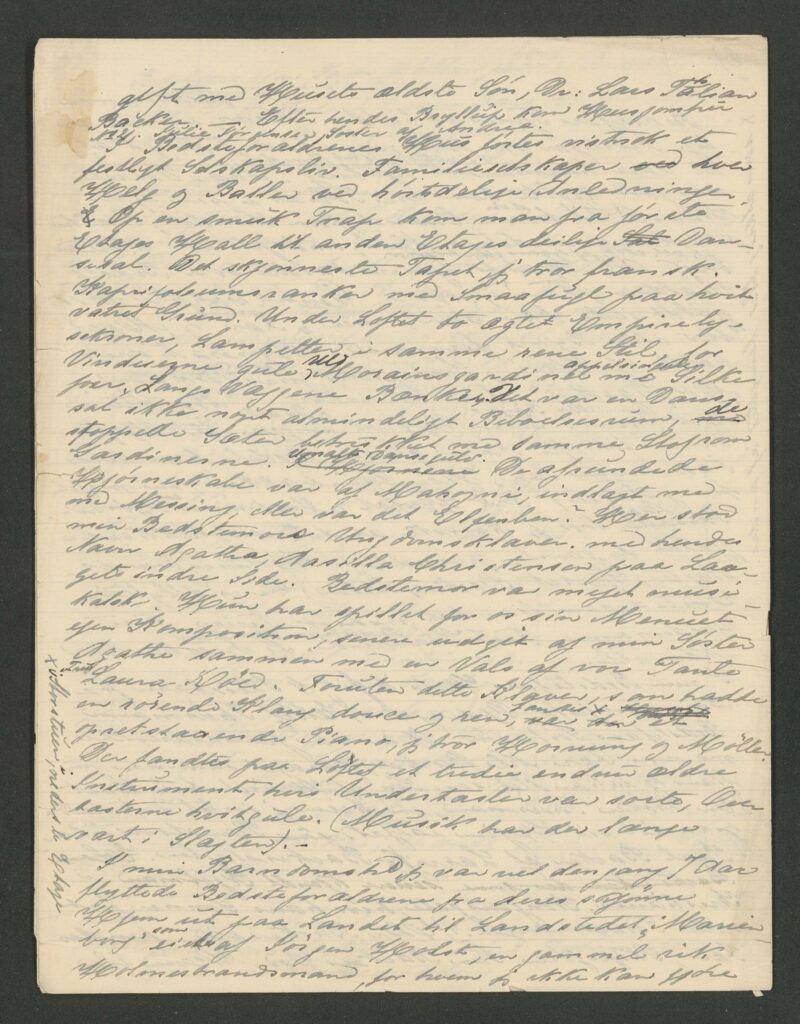 gift med Husets ældste Søn, Dr: Lars
Backer. Efter hendes Bryllup kom Husjomfru
Julie Jørgensen, Søster af Andrea.
I Bedsteforældrenes Hus førtes vistnok et
festligt Selskapsliv. Familieselskaper hver
Helg og Baller ved høitidelige Anledninger.
Op en smuk Trap kom man fra første
Etages Hall til anden Etages deilige Dan-
sesal. Det skjønneste Tapet, jeg tror fransk.
Kaprifoliumsranker med Smaafugl paa hvit
vatret Grund. Under Loftet to ægte Empirely-
sekroner, Lampetter i samme rene Stil, for
Vinduerne gule Moirainsgardiner med Silke
foer, Langs Væggene Bænker. Det var en Dans
sal ikke noget almindeligt Beboelsesrum, de
stoppede Sæter betrukket med samme Stof som
Gardinerne. De afrundede
Hjørneskabe var af Mahogni, indlagt med
med Messing, eller var det Elfenben? Her stod
min Bedstemors Ungdomsklaver. med hendes
Navn Agatha Aasilla Christensen paa Laa-
gets indre Side. Bedstemor var meget musi-
kalsk. Hun har spillet for os sin Menuet
egen Komposition, senere udgit af min Søster
Agathe sammen med en Vals af vor Tante
Fru Laura Køed. Foruten dette Klaver, som hadde
en rørende Klang douce og ren, fandtes et
opretstaaende Piano, jeg tror Hornung og Møller.
Der fandtes paa Loftet et tredie endnu ældre
Instrument, hvis Undertaster var sorte, Over
tasterne hvitgule. (Musik har der længe
vært i Slægten). –
I min Barndomstid jeg var vel dengang 7 Aar
flyttede Bedsteforældrene fra deres skjønne
Hjem ut paa Landet til Landstedet "Marien
borg" som eiedes af Jørgen Holst, en gammel rik
Holmestrandsmand, for hvem jeg ikke kan gjøre
x i Storstuen, i nederste Etage